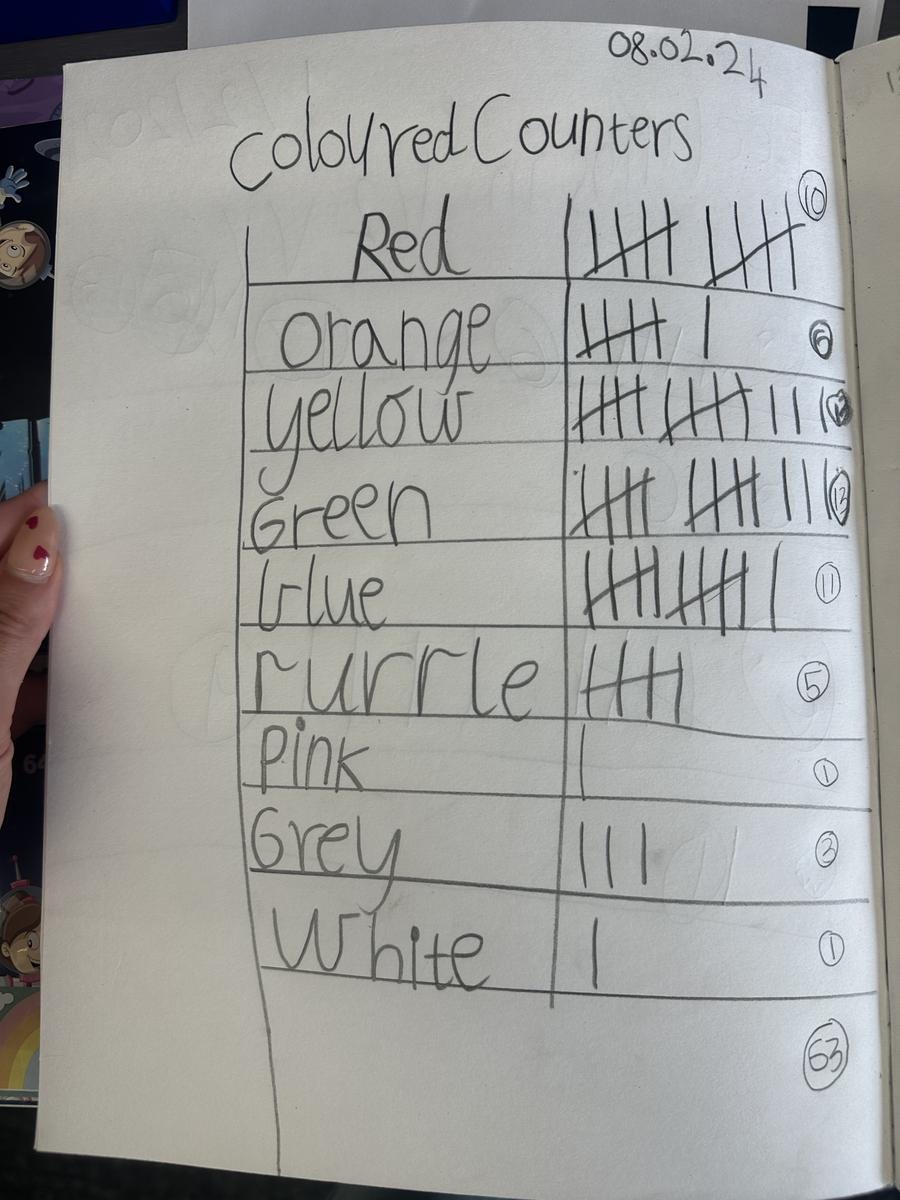 08.02.24
Coloured Counters
Red 10
Orange 6
Yellow
Green 13
blue 11
rurrle 5
Pink 1
Grey 3
White 1
63